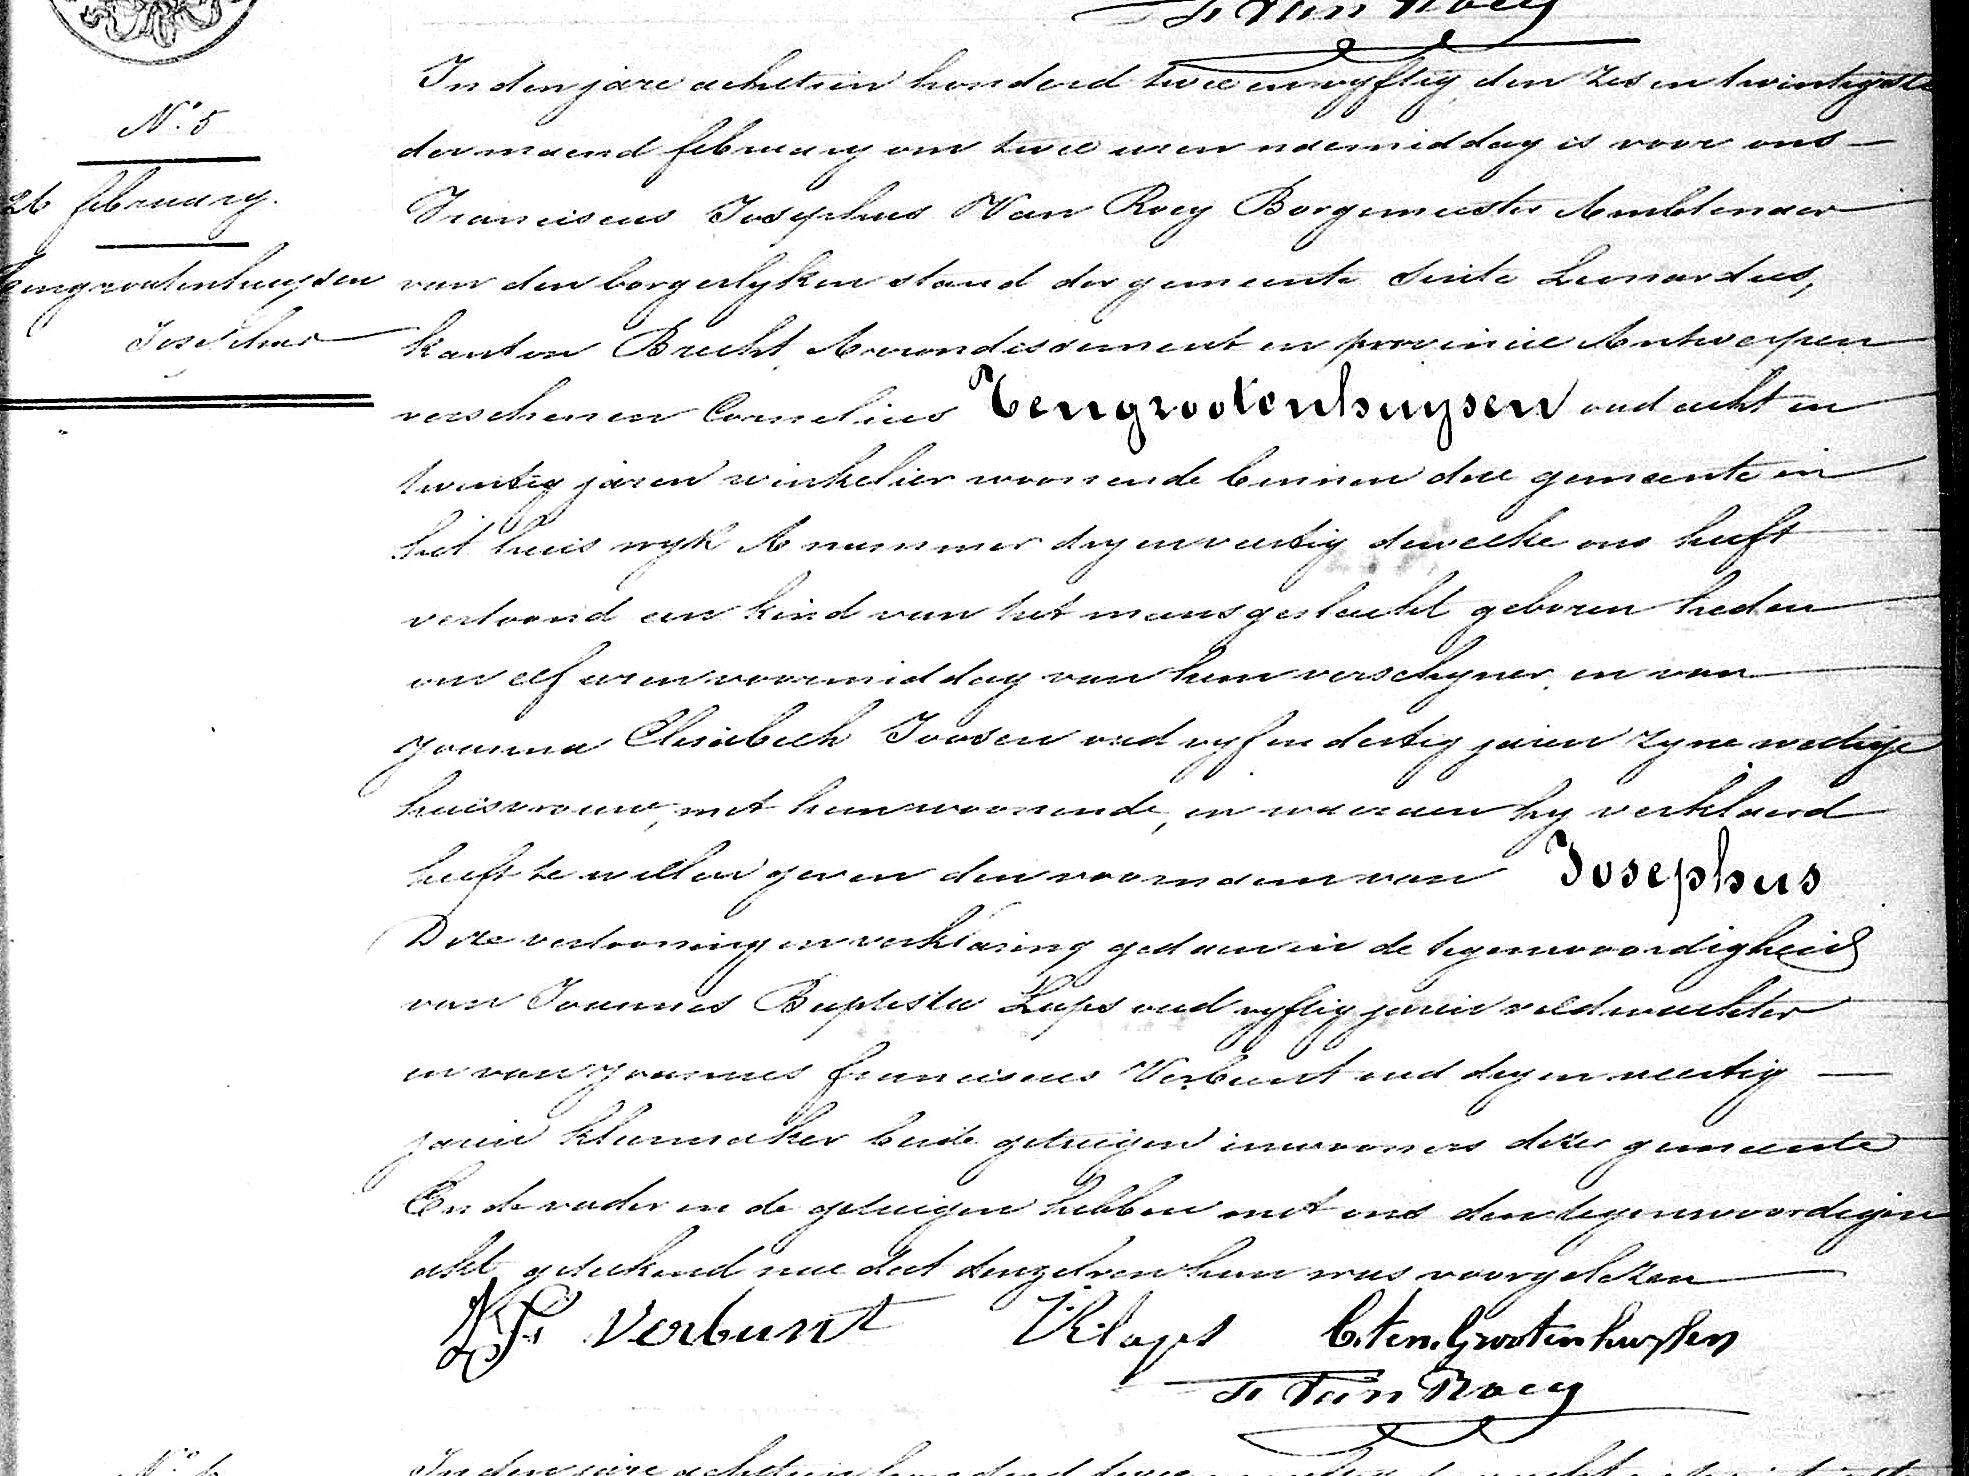 F Van Roey
In den jare achttien honderd twee en vyftig, den zes en twintigste
N.° 5
der maend february om twee uren naemiddag is voor ons
26 february.
Franciscus Josephus Van Roey Borgemeester Ambtenaer
Tengrootenhuysen
van den borgerlyken stand der gemeente Sinte Leonardus,
Josephus
kanton Brecht, Arrondissement en provincie Antwerpen
verschenen Cornelius Tengrootenhuysen oud acht en
twintig jaren winkelier woonende binnen deze gemeente in
het huis wyk A nummer dry en veertig dewelke ons heeft
vertoond een kind van het mansgeslacht geboren heden
om elf uren voormiddag van hem verschyner en van
Joanna Elisabeth Joosen oud vyf en dertig jaren zyne wettige
huisvrouw, met hem woonende, en waeraen hy verklaerd
heeft te willen geven den voornaem van Josephus
Deze vertooning en verklaring gedaen in de tegenwoordigheid
van Joannes Baptista Laps oud vyftig jaren veldwachter
en van Joannes Franciscus Verbunt oud dry en veertig
jaren klunmaker beide getuigen inwooners dezer gemeente
En de vader en de getuigen hebben met ons den tegenwoordigen
akt geteekend nae dat denzelven hun was voorgelezen
J.F. Verbunt Laps C. ten Grootenhuysen
F Van Roey
N.° 6
In den jare achttien honderd twee